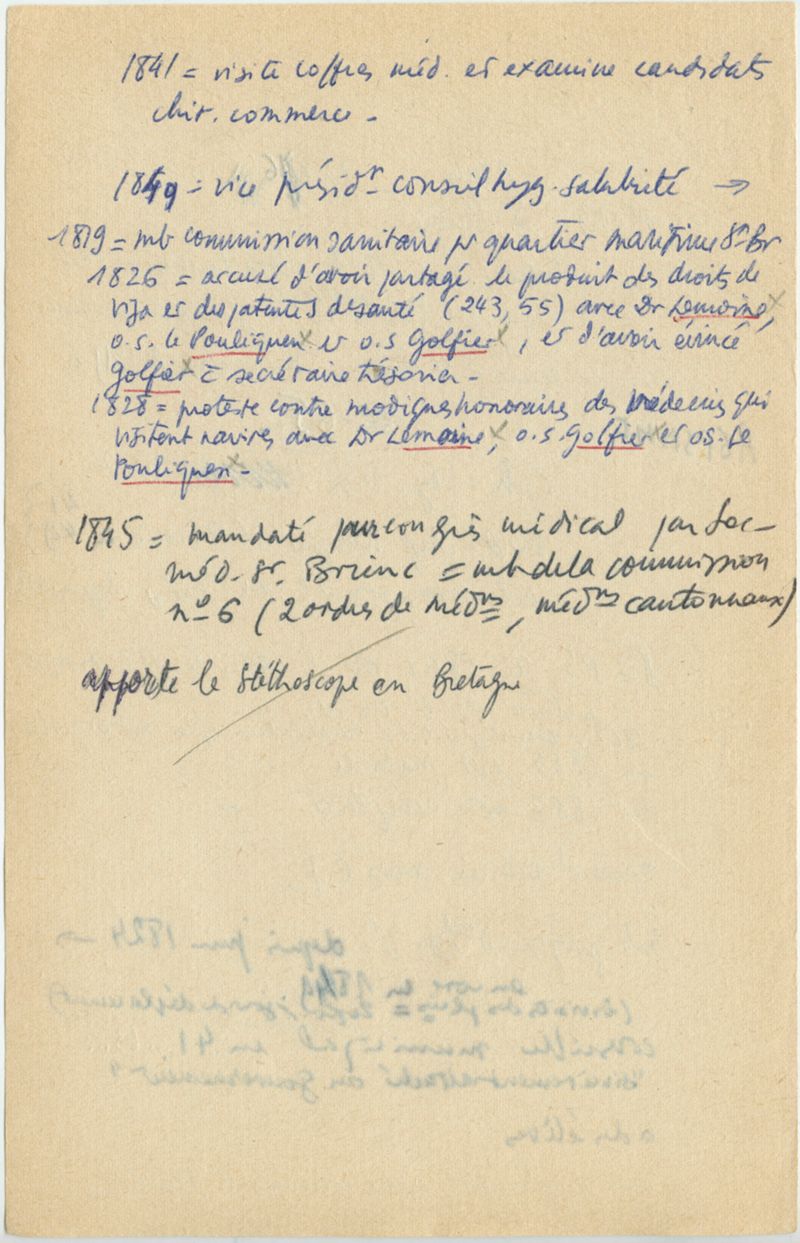 1841 = visite coffres méd. et examine candidats
chir. commerce -
1849 = vice présidt conseil hyg. salubrité →
1819 = mb commission sanitaire pr quartier maritime St-Br
1826 = accusé d'avoir partagé le produit des droits de
visa et des patentes de santé (243,55) avec Dr Lemoine,
o.s. le Pouliquen et o.s Golfier, et d'avoir évincé
Golfier c secrétaire trésorier -
1828 = proteste contre modiques honoraires des médecins qui
visitent navires avec Dr Lemoine, o.s. Golfier et os. Le
Pouliquen -
1845 = mandaté pur congrès médical par Soc-
méd. St. Brieuc = mb de la commission
no 6 (2 ordres de médns, médns cantonnaux)
apporte le Stéthoscope en Bretagne
depuis 1824
conseiller municipal en 41